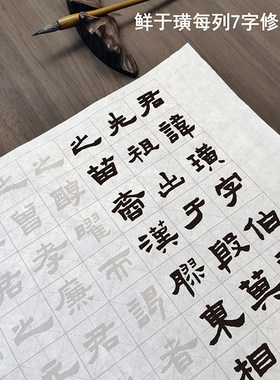 鲜于璜每列7字修
君諱璜字伯
先祖出于殷
之苗裔漢膠東相
之醇曜而謁者
曾孝廉君
之